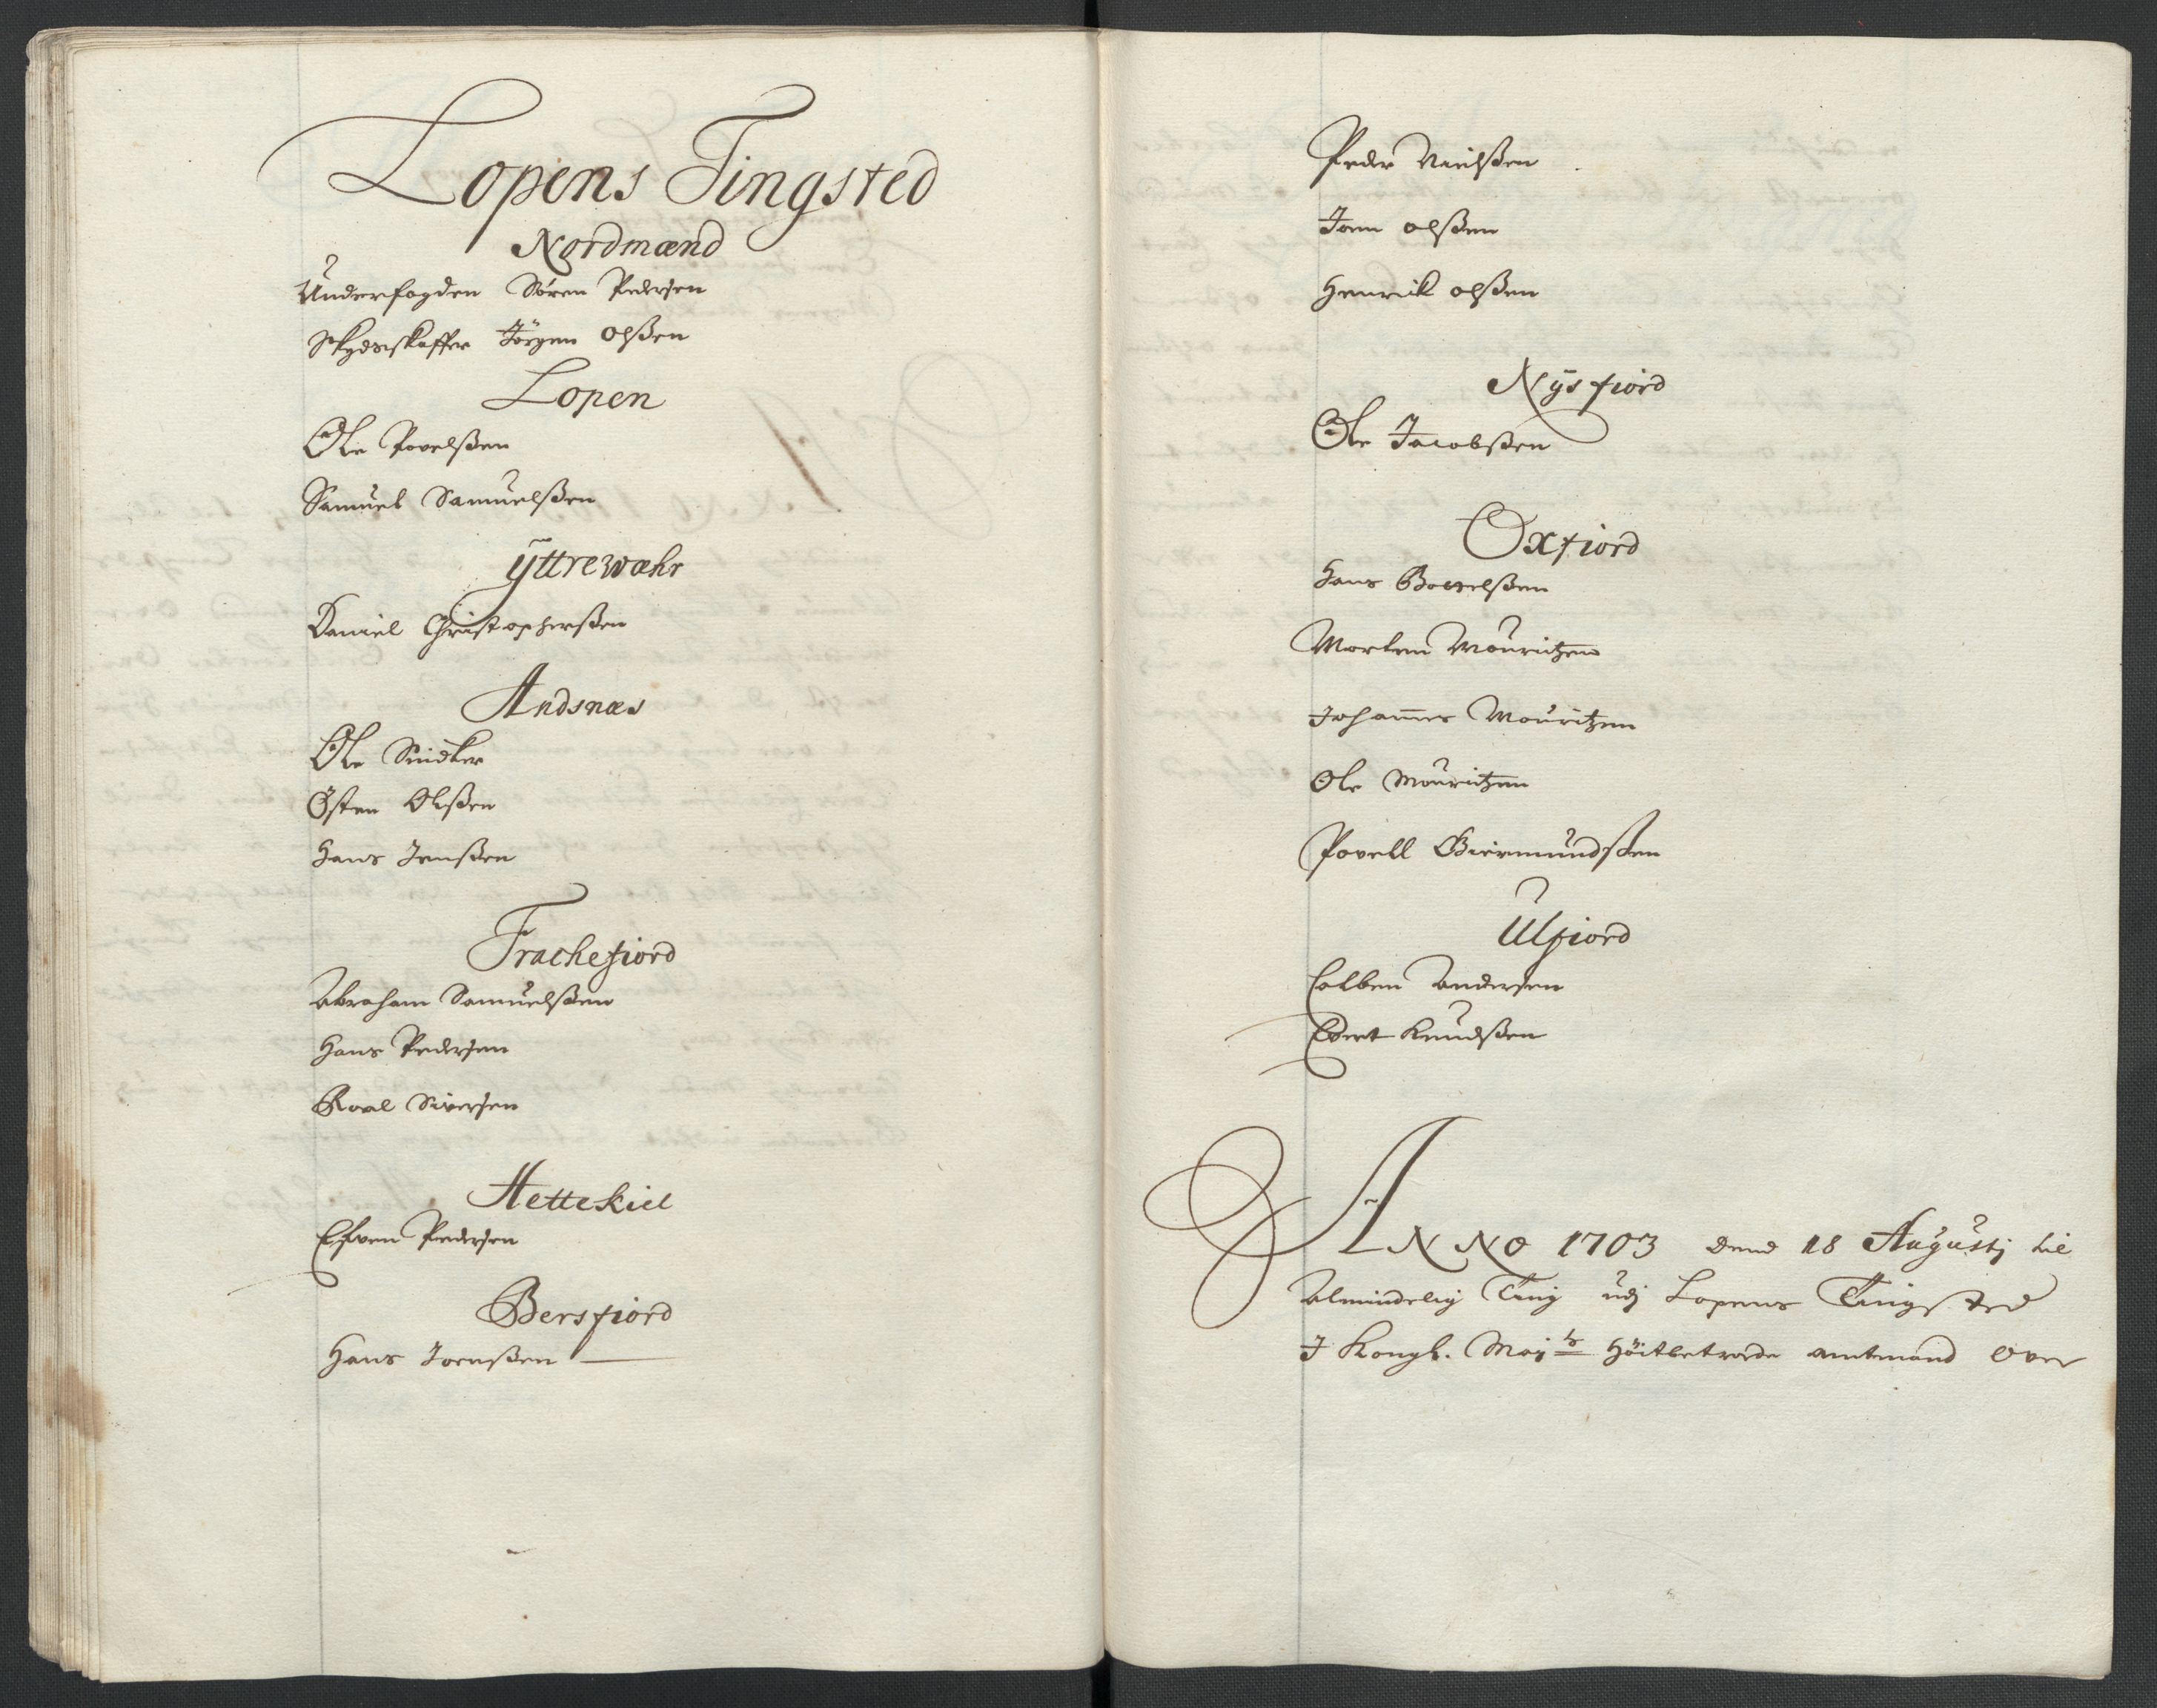 Lopens Tingsted
Nordmænd
Underfogden Sören Pedersen
Skydsskaffer Jörgen Olßen
Lopen
Ole Povelßen
Samuel Samuelßen
ÿttrewæhr
Daniel Christopherßen
Andsnæs
Ole Snidker
Östen Olßen
Hans Jenßen
Frachefiord
Abraham Samuelßen
Hans Pedersen
Roal Siversen
Hetteskiel
Efven Pedersen
Bersfiord
Hans Joenßen
Peder Nielßen
Joen olßen
Henrik olßen
Nÿsfiord
Ole Jacobßen
Oxfiord
Hans
Morten Mouritzen
Johannes Mouritzen
Ole Mouritzen
Povell Giermundßen
Ulfiord
Colben Andersen
Evert Knudßen
ANNO 1703 dend 18 Augustj til
Almindelig Ting udj Lopens Tingsted
J Kongl. Maÿts Höitbetroede amtmand over